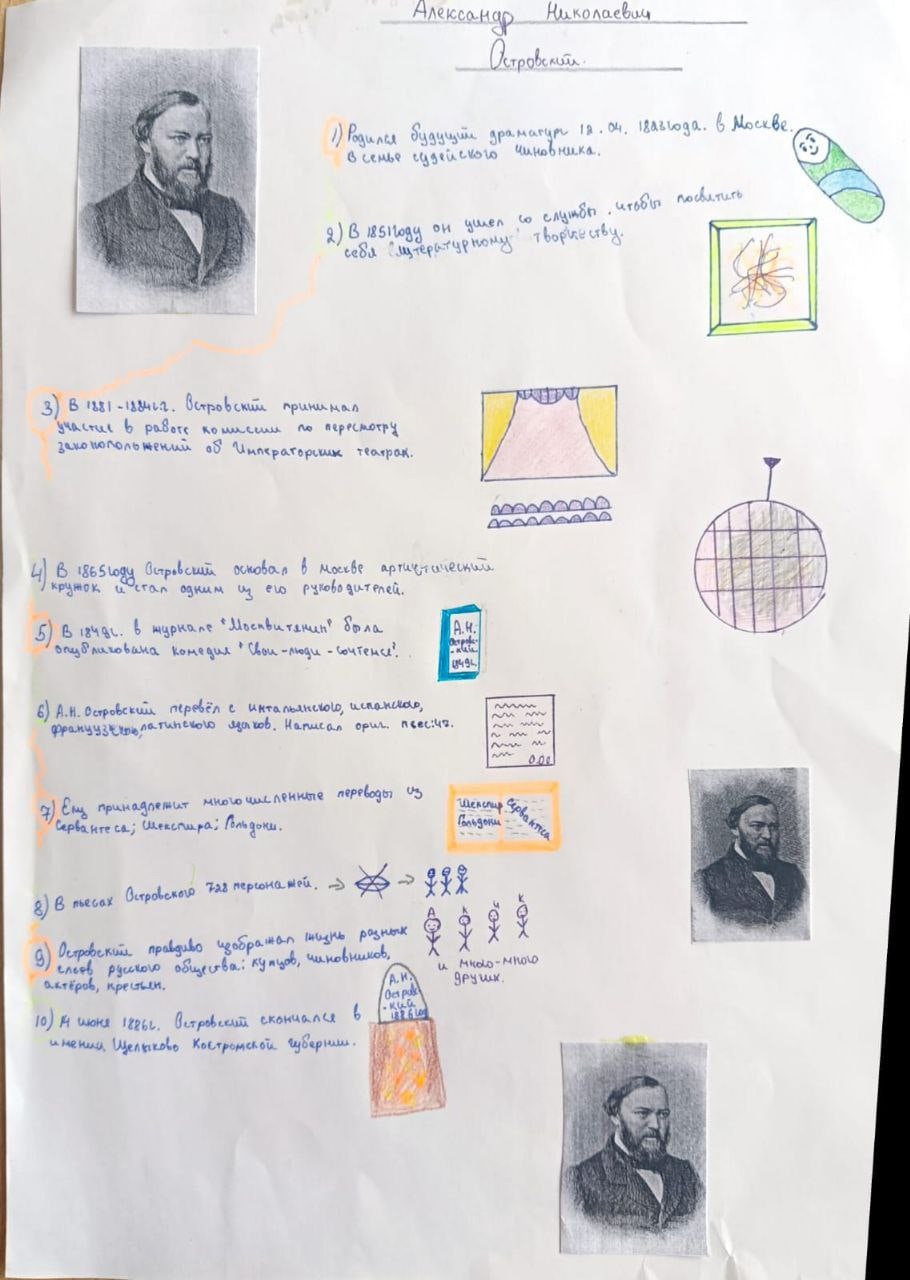 Александр Николаевич
Островский.
1) Родился будущий драматург 12.04.1823года. в Москве.
в семье судейского чиновника.
2) В 1851году он ушел со службы, чтобы посвятить
себя литературному творчеству.
3) В 1881-1884г.г. Островский принимал
участие в работе комиссии по пересмотру
законоположений об Императорских театрах.
4) В 1865году Островский основал в москве артистический
кружок и стал одним из его руководителей.
5) В 1849г. в журнале "Москвитянин" была
опубликована комедия "Свои-люди-сочтемся".
А.Н.
Островс-
-кий
1849г.
6) А.Н. Островский перевёл с интальянского, испанского,
французского, латинского языков. Написал ориг. пьес:47.
7) Ему принадлежит многочисленные переводы из
Сервантеса; Шекспира; Гольдони.
Шекспир Сервантеса
Гольдони
8) В пьесах Островского 728 персонажей.
9) Островский правдиво изображал жизнь разных
слоёв русского общества: купцов, чиновников,
актёров, крестьян.
А К Ч К
и много-много
других.
10) 14 июня 1886г. Островский скончался в
имении Щелыково Костромской губернии.
А.Н.
Остров-
-ский
1886год